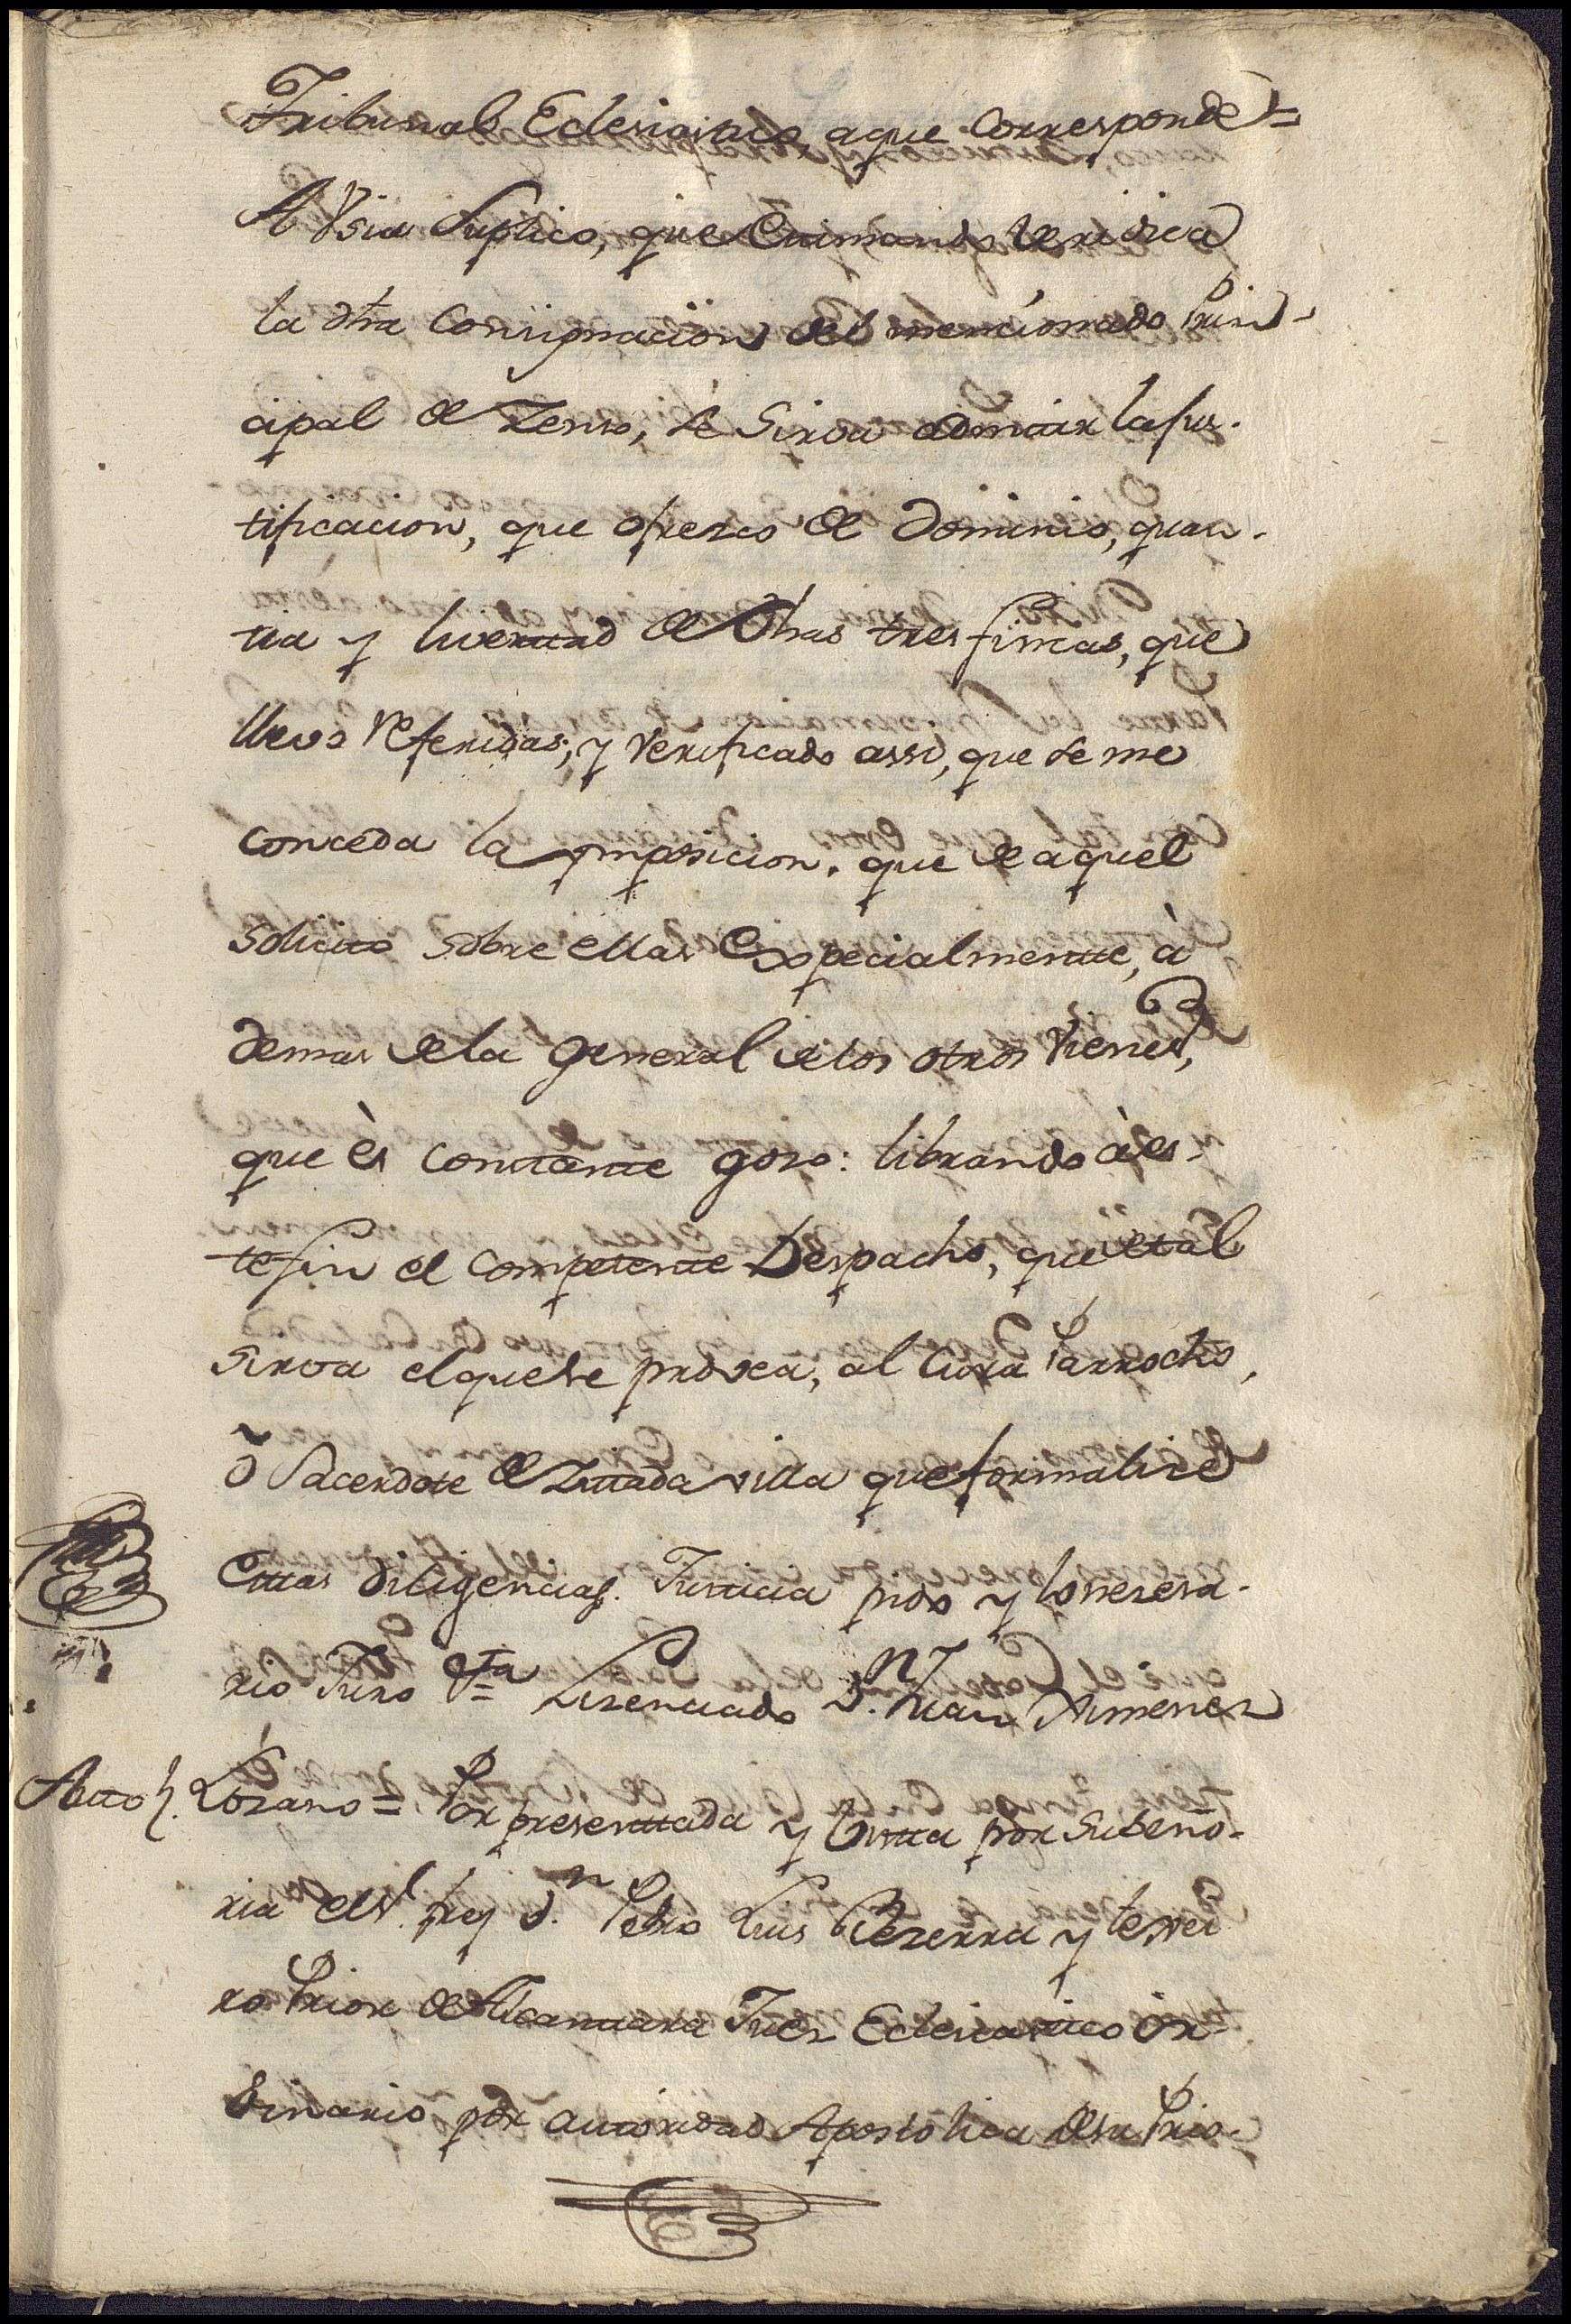 Tribunal Eclesiastico, aque Corresponde=
A Vsia Suplico, que Estimando Veridica
la dha Consignacion del mencionado Prin-
cipal de Zenso, se Sirva admitir la jus-
tificacion, que ofresco de Dominio, quan-
tia y livertad de dhas tres fincas, que
llevo referidas, y verificado assi, que se me
conceda la ymposicion, que de aquel
solicito sobre ellas Expecialmente, à
demas de la general de los otros vienes,
que ès constante goso: librando à es-
te fin el competente Despacho, que de tal
sirva el que se provea, al Cura Parrocho,
ô Sacerdote de Zittada villa que formalize
Estas diligencias. Justicia pido y lo nesesa-
rio Juro Vta= Lizenciado Dn. Juan Ximenez
Autto. Lozano= Por presenttada y Vista por Su Seño-
ria el Sl. frey Dn. Pedro Luis Bezerra y
ro Prior de Alcantara Juez Eclesiastico or-
dinario por autoridad Apostolica de su Prio-